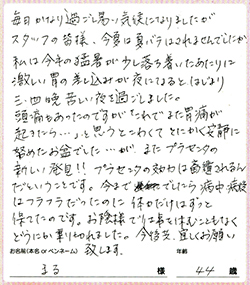 毎日かなり過ごし易い気候になりましたが
スタッフの皆様、今夏は夏バテはされませんでしたか
私は今年の猛暑が少し落ち着いたあたりに
激しい胃の差し込みが夜になるとはじまり
三、四晩苦しい夜を過ごしました。
頭痛もあったのですが「これでまた胃痛が
起きたら…」と思うとこわくてとにかく安静に
努めたお盆でした…が、またプラセンタの
新しい発見!! プラセンタの効力は歯援されるん
だということです。今まででしたら病中病後
はフラフラだったのに体力だけはずっと
保てたのです。お陰様で仕事を休むこともなく
どうにか乗り切れました。今後共、宜しくお願い
致します。
お名前(本名 or ペンネーム) 年齢
まる 様 44 歳